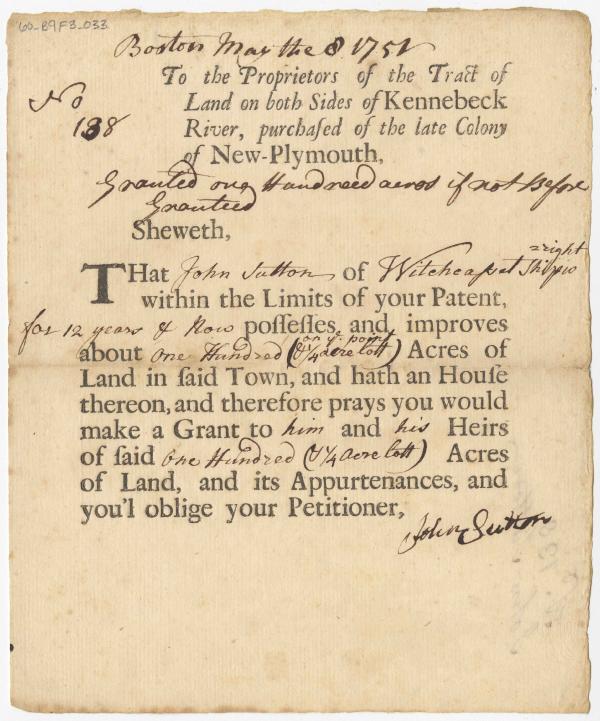 60-B9F3-033
Boston May the 8 1751
To the Proprietors of the Tract of
No
Land on both Sides of Kennebeck
138
River, purchaſed of the late Colony
of New-Plymouth,
Granted one Hundreed acres if not Before
Granteed
Sheweth,
THat John Sutton of Witchcaſset Shipwright
within the Limits of your Patent,
for 12 years & Now poſſeſſes and improves
on ye. point
about one Hundred (& 1/4 acre lott) Acres of
Land in ſaid Town, and hath an Houſe
thereon, and therefore prays you would
make a Grant to him and his Heirs
of ſaid One Hundred (& 1/4 acre lott) Acres
of Land, and its Appurtenances, and
you'l oblige your Petitioner,
John Sutton